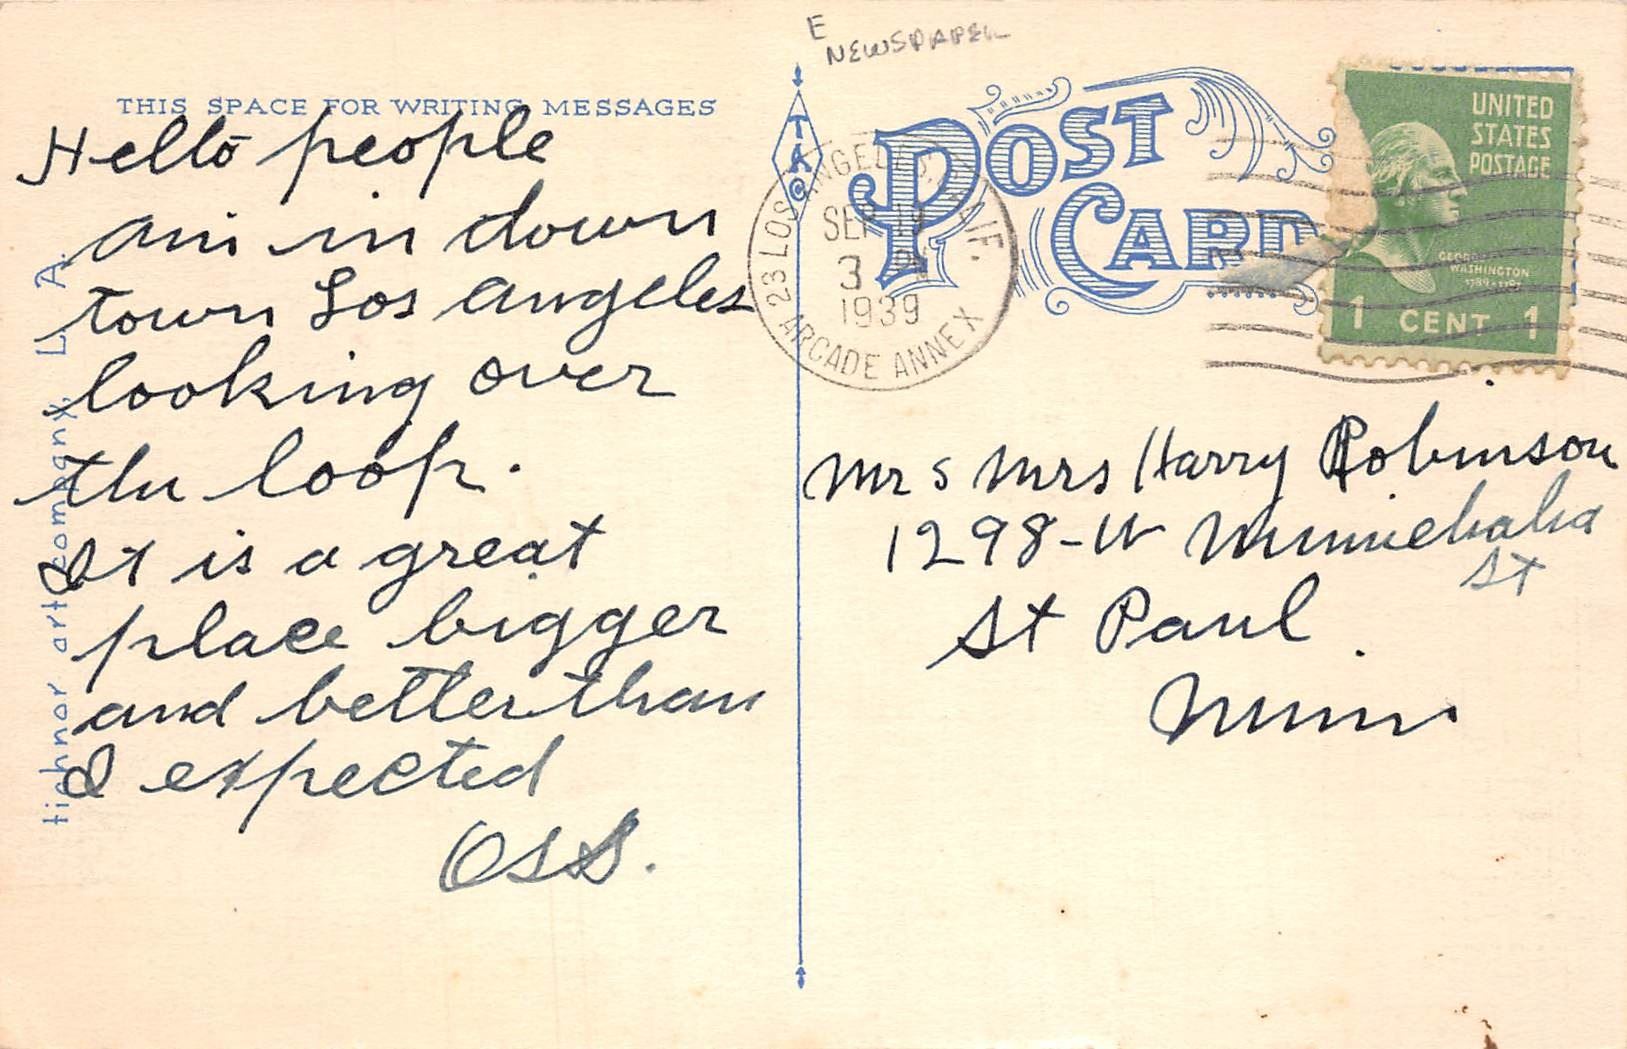 E
NEWSPAPER
THIS SPACE FOR WRITING MESSAGES
Hello people
am in down
town Los Angeles
looking over
the loop.
It is a great
place bigger
and better than
I expected
OSS.
tichnor art company, L. A.
TAC
POST
CARD
23 LOS ANGELES, CALIF.
SEP
3 PM
1939
ARCADE ANNEX
UNITED
STATES
POSTAGE
GEORGE
WASHINGTON
1 CENT 1
Mr s Mrs Harry Robinson
1298-W Minnehaha
St
St Paul.
Minn